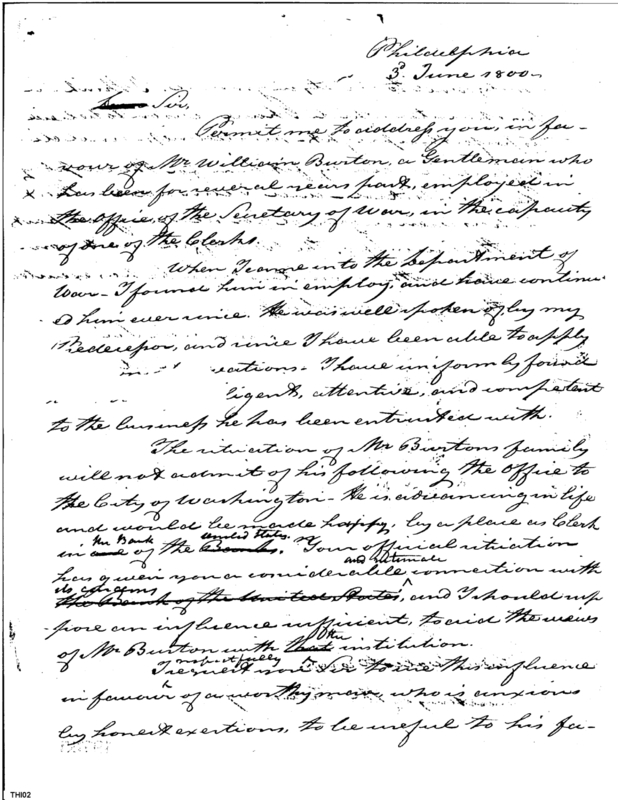 Phildelphia
3d. June 1800-
Sir,
Permit me to address you, in fa-
vour of Mr William Burton, a Gentleman who
has been for several years past, employed in
the Office, of the Secretary of War, in the capacity
of one of the Clerks.
When I came into the Department of
War- I found him in employ, and have continu-
ed him ever since. He was well spoken of by my
Predecessor, and since I have been able to apply
I have uniformly found
ligent, attentive, and competent
to the business he has been entrusted with.
The situation of Mr Burtons family
will not admit of his following the Office to
the City of Washington- He is advancing in life
and would be made happy, by a place as Clerk
the Bank united States.
in one of the Banks. Your official situation
and intimate
has given you a considerable connection with
its concerns
the Bank of the United States, and I should sup
pose an influence sufficient, to aid the views
the
of Mr Burton with that institution.
respectfully
I request you Sir to use this influence
in favour of a worthy man, who is anxious
by honest exertions, to be useful to his fa-
THI02